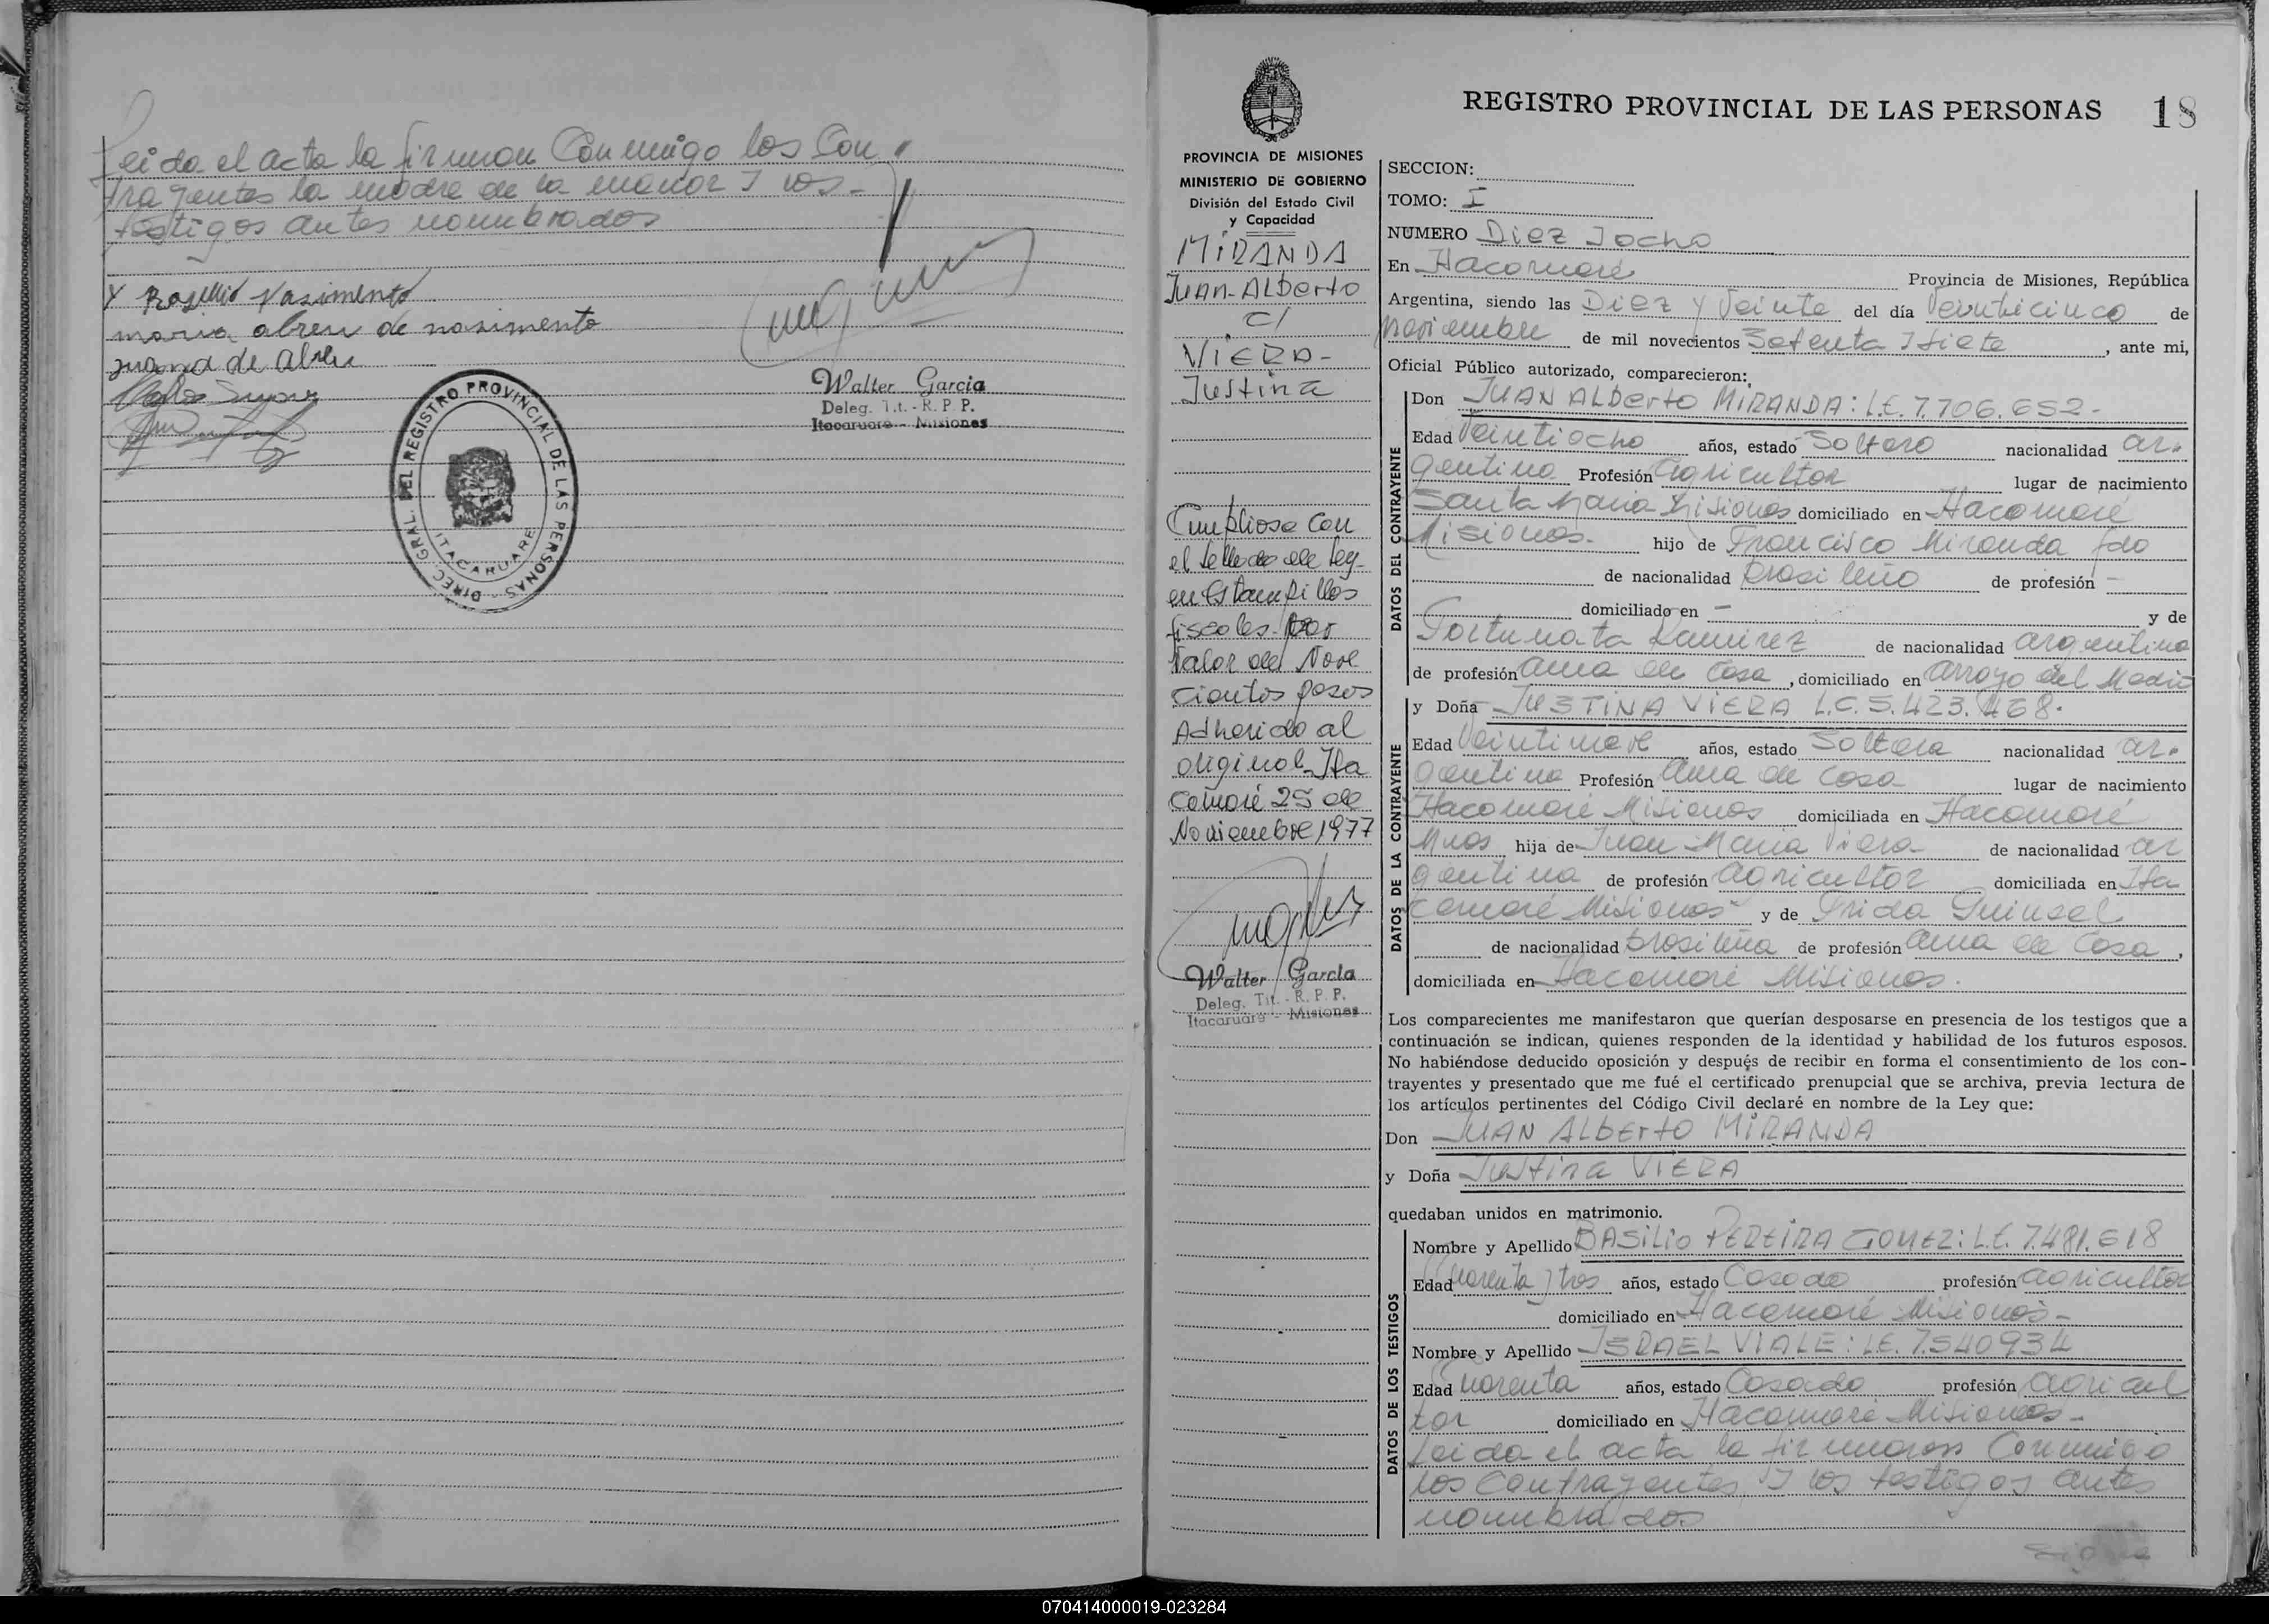 Leida el acta la firman Conmigo los Con
trayentes la madre de la menor y los
testigos antes nombrados
Nasimento
maria abreu de nasimento
Juana de Abreu
Walter Garcia
Deleg. Tit. - R. P. P.
Itacaruare - Misiones
DIREC. GRAL. DEL REGISTRO PROVINCIAL DE LAS PERSONAS
ITACARUARE
REGISTRO PROVINCIAL DE LAS PERSONAS 18
PROVINCIA DE MISIONES
MINISTERIO DE GOBIERNO
División del Estado Civil
y Capacidad
MIRANDA
Juan-Alberto
c/
VIERA-
Justina
Cumpliose con
el sellado de ley
en Estampillas
fiscales por
Valor de Nove
cientos pesos
Adherido al
original Ita
caruaré 25 de
Noviembre 1977
Walter Garcia
Deleg. Tit. - R. P. P.
Itacaruare - Misiones
SECCION:
TOMO: I
NUMERO Diez y ocho
En Itacaruaré Provincia de Misiones, República
Argentina, siendo las Diez y Veinte del día Veinticinco de
Noviembre de mil novecientos Setenta y siete, ante mi,
Oficial Público autorizado, comparecieron:
DATOS DEL CONTRAYENTE
Don JUAN ALBERTO MIRANDA: L.E. 7.706.652-
Edad Veintiocho años, estado Soltero nacionalidad ar-
gentina Profesión agricultor lugar de nacimiento
Santa Maria Misiones domiciliado en Itacaruaré
Misiones. hijo de Francisco Miranda fdo
de nacionalidad brasileño de profesión -
domiciliado en - y de
Fortunata Ramirez de nacionalidad argentina
de profesión ama de casa, domiciliado en Arroyo del Medio
DATOS DE LA CONTRAYENTE
y Doña JUSTINA VIERA L.C. 5.423.468.
Edad Veintinueve años, estado Soltera nacionalidad ar-
gentina Profesión Ama de casa lugar de nacimiento
Itacaruaré Misiones domiciliada en Itacaruaré
Mnes hija de Juan Maria Viera de nacionalidad ar
gentina de profesión agricultor domiciliada en Ita
caruaré Misiones y de Frida
de nacionalidad brasileña de profesión ama de casa,
domiciliada en Itacaruaré Misiones.
Los comparecientes me manifestaron que querían desposarse en presencia de los testigos que a
continuación se indican, quienes responden de la identidad y habilidad de los futuros esposos.
No habiéndose deducido oposición y después de recibir en forma el consentimiento de los con-
trayentes y presentado que me fué el certificado prenupcial que se archiva, previa lectura de
los artículos pertinentes del Código Civil declaré en nombre de la Ley que:
Don JUAN ALBERTO MIRANDA
y Doña Justina VIERA
quedaban unidos en matrimonio.
DATOS DE LOS TESTIGOS
Nombre y Apellido BASILIO PEREIRA GOMEZ: L.E. 7.481.618
Edad y tres años, estado Casado profesión agricultor
domiciliado en Itacaruaré Misiones-
Nombre y Apellido ISRAEL VIALE: L.E. 7.540934
Edad años, estado Casado profesión agricul
tor domiciliado en Itacaruaré Misiones-
Leida el acta la firmaron Conmigo
los Contrayentes y los testigos antes
nombrados
Sigue
070414000019-023284